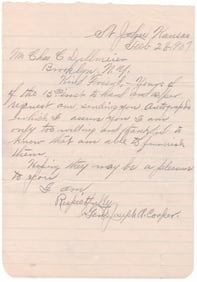 St John Kansas
Feb 26 1907
Mr Chas C
Brooklyn, N.Y.
Kind Friend - Yours of
the 15th inst to hand and as per
request am sending you Autographs
which I assure you I am
only too willing and thankful to
know that am able to furnish
them.
Hoping they may be a pleasure
to you
I am
Respectfully
Joseph A. Cooper.